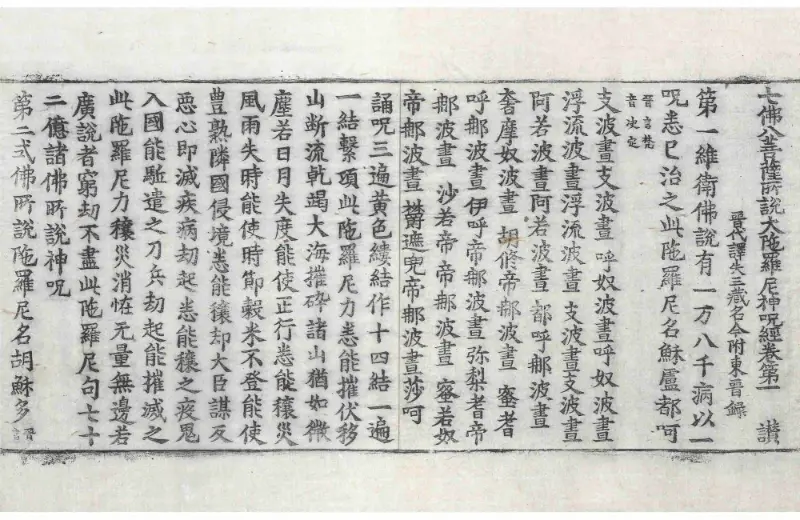 七佛八菩薩所說大陁羅尼神呪經卷第一 讃
晉代譯失三藏名今附東晉錄
第一維衛佛說有一万八千病以一
呪悉已治之此陁羅尼名蘇盧都呵
晉言梵
音決定
支波晝支波晝 呼奴波晝呼奴波晝
浮流波晝浮流波晝 支波晝支波晝
阿若波晝阿若波晝 都呼郍波晝
奢摩奴波晝 胡修帝郍波晝 蜜耆
呼郍波晝 伊呼帝郍波晝弥梨耆帝
郍波晝 沙若帝 帝郍波晝 蜜若奴
帝郍波晝 欝遮兜帝郍波晝莎呵
誦呪三遍黄色縷結作十四結一遍
一結繫項此陁羅尼力悉能摧伏移
山断流乾竭大海摧碎諸山猶如微
塵若日月失度能使正行悉能穰災
風雨失時能使時節穀米不登能使
豊熟隣國侵境悉能穰却大臣謀反
悪心即滅疾病劫起悉能穰之疫鬼
入國能駈遣之刀兵劫起能摧滅之
此陁羅尼力穰災消恠无量無邊若
廣說者窮劫不盡此陁羅尼句七十
二億諸佛所說神呪
第二式佛所說陁羅尼名胡蘇多